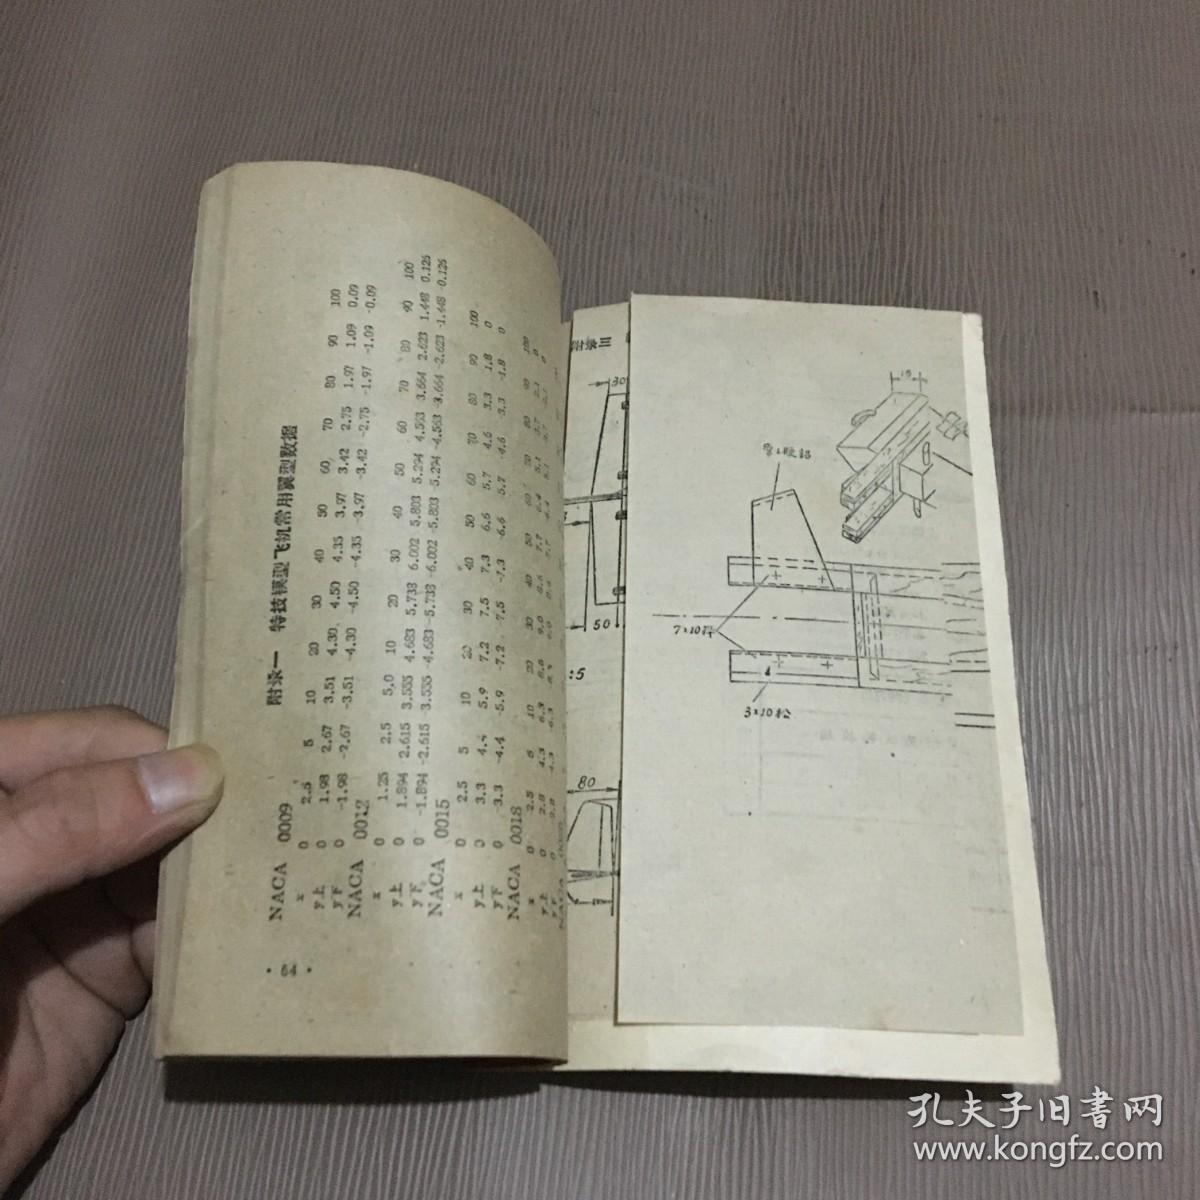 附录一 特技模型飞机常用翼型数据
NACA 0009
x 0 2.5 5 10 20 30 40 50 60 70 80 90 100
y上 0 1.98 2.67 3.51 4.30 4.50 4.35 3.97 3.42 2.75 1.97 1.09 0.09
y下 0 -1.98 -2.67 -3.51 -4.30 -4.50 -4.35 -3.97 -3.42 -2.75 -1.97 -1.09 -0.09
NACA 0012
x 0 1.25 2.5 5.0 10 20 30 40 50 60 70 80 90 100
y上 0 1.894 2.615 3.555 4.683 5.738 6.002 5.803 5.294 4.563 3.664 2.623 1.448 0.126
y下 0 -1.894 -2.615 3.555 -4.683 -5.738 -6.002 -5.803 5.294 -4.563 -3.664 -2.623 -1.448 0.126
NACA 0015
x 0 2.5 5 10 20 30 40 50 60 70 80 90 100
y上 0 3.3 4.4 5.9 7.2 7.5 7.3 6.6 5.7 4.6 3.3 1.8 0
y下 0 -3.3 -4.4 -5.9 -7.2 -7.5 -7.3 -6.6 -5.7 -4.6 -3.3 -1.8 0
NACA 0018
· 64 ·
30
50
:5
80
15
7×10
3×10松
孔夫子旧书网
www.kongfz.com